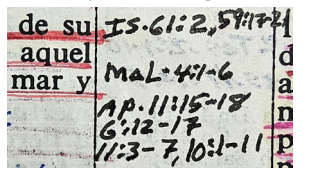 de su
aquel
mar y
IS. 61:2, 59:17-21
Mal. 4:1-6
Ap. 11:15-18
6:12-17
11:3-7, 10:1-11